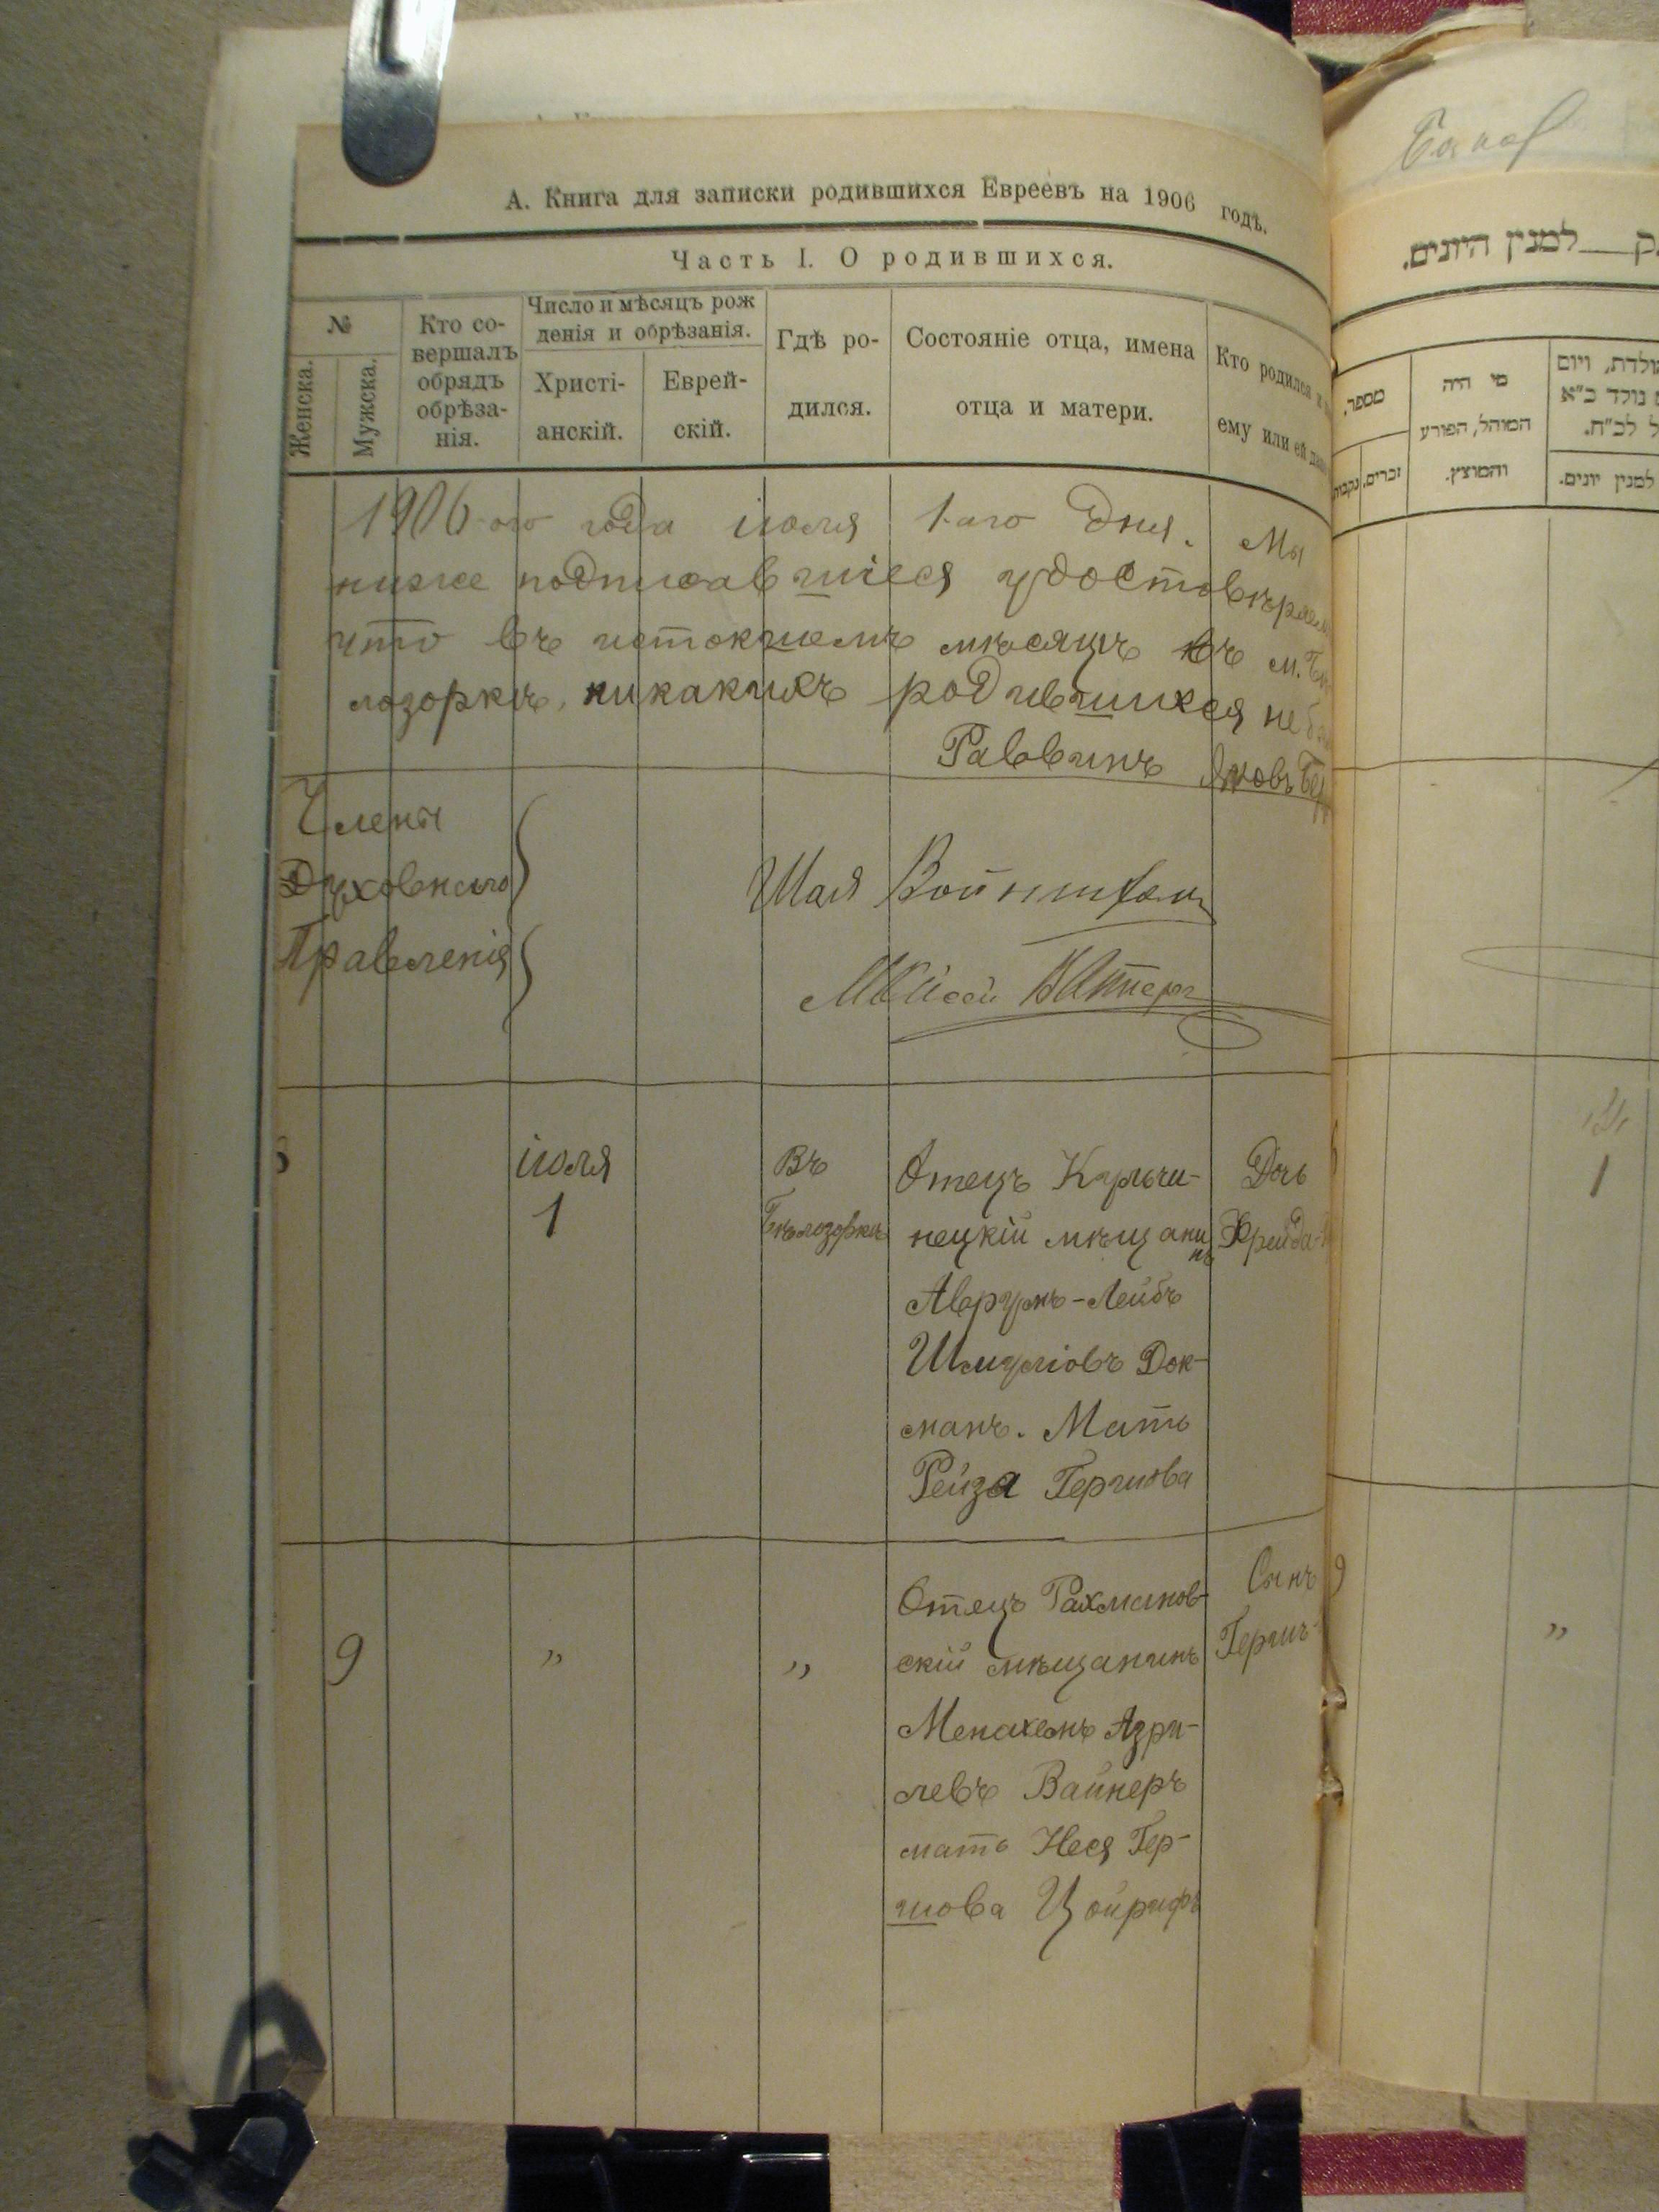 А. Книга для записки родившихся Евреевъ на 1906 годъ.
Часть I. О родившихся.
№
Женска.
Мужска.
Кто со-
вершалъ
обрядъ
обрѣза-
нія.
Число и мѣсяцъ рож
денія и обрѣзанія.
Христі-
анскій.
Еврей-
скій.
Гдѣ ро-
дился.
Состояніе отца, имена
отца и матери.
Кто родился и
ему или ей
1906-ого года іюля 1-аго дня. Мы
ниже подписавшіеся удостовѣряем
что въ истокшемъ мѣсяцѣ въ м. Бѣ
лозоркѣ, никакихъ родившихся не
Раввинъ Яковъ
Члены
Духовнаго
Правленія
Шая
іюля
1
Въ
Бѣлозоркѣ
Отецъ Кульчи-
нецкій мѣщани
нъ
Аврумъ-Лейбъ
Шмуліовъ Док-
манъ. Мать
Рейза Гершова
Дочь
Фрейда-
9
"
"
Отецъ Рахманов-
скій мѣщанинъ
Менахемъ Азри-
левъ Вайнеръ
мать Неся Гер-
шова Цойрифъ
Сынъ
Гершъ-
למנין היונים.
מספר.
זכרים.
מי היה
המוהל, הפורע
והמוצץ.
למנין יונים.
1
9
"